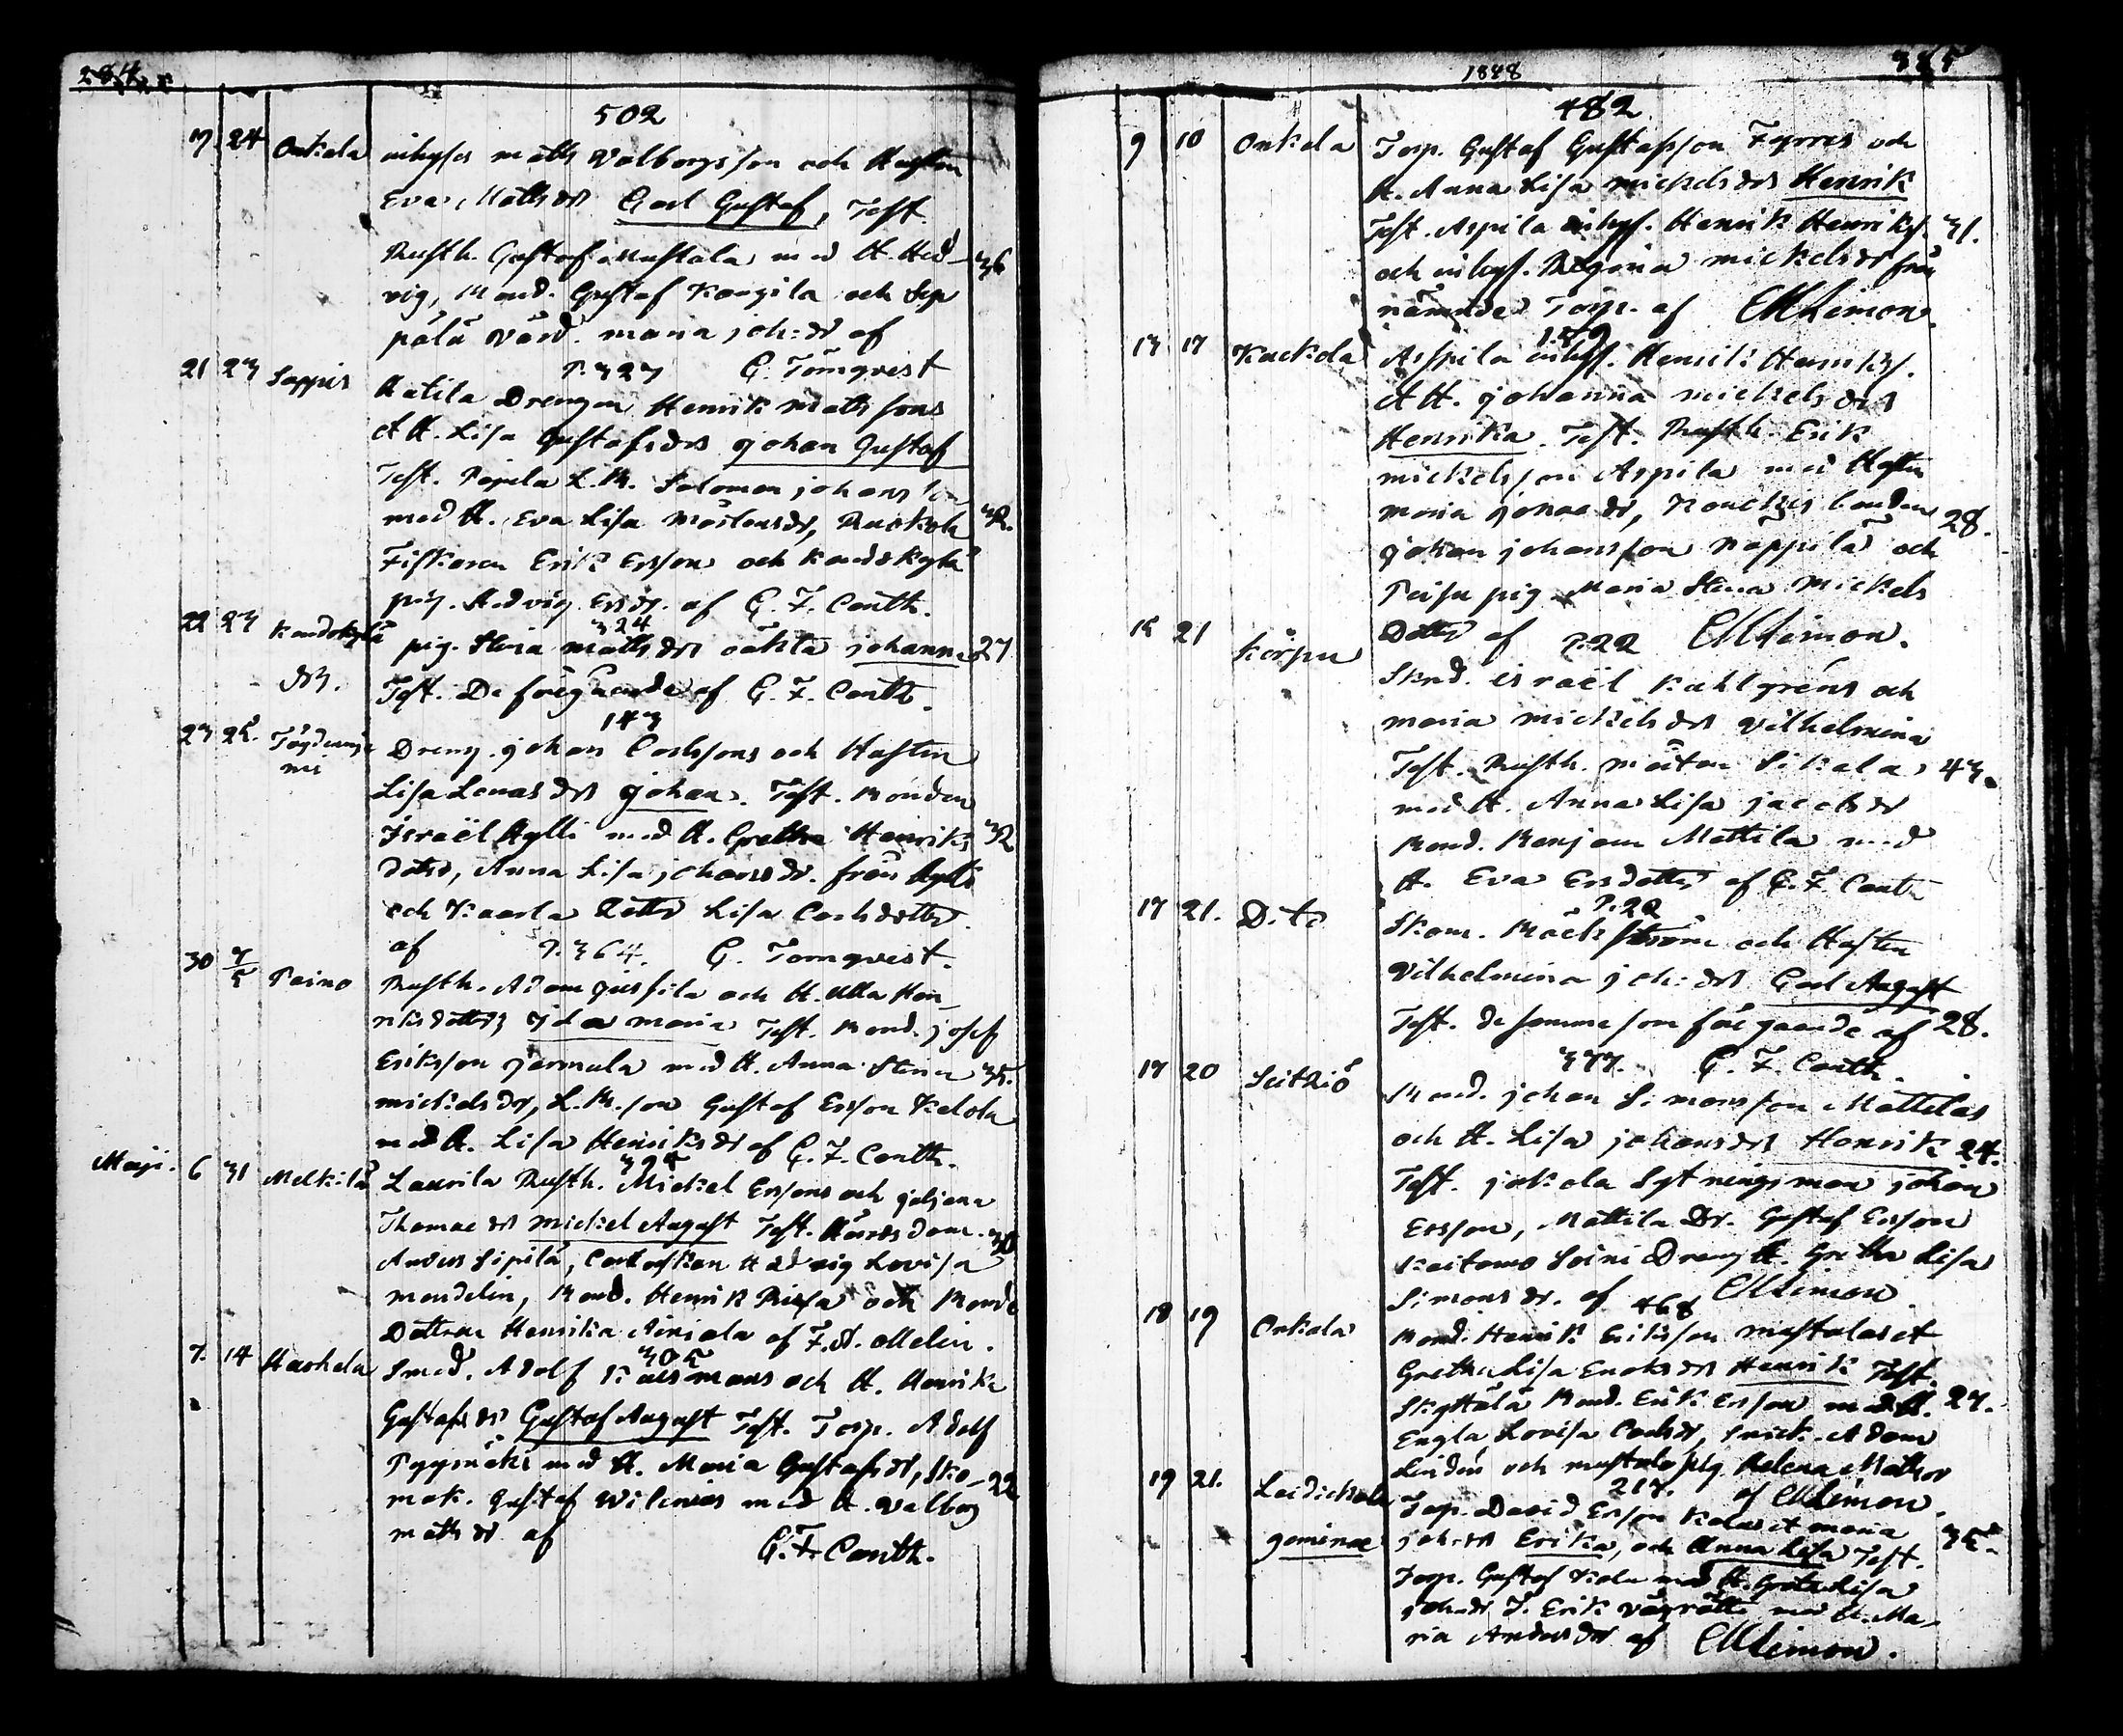 284
502
17 24 Onkala inhyses Matts Valborgsson och Hustrun
Eva Mattsdr Carl Gustaf, Test.
Rusth. Gustaf Mustala med H. Hed- 36
vig, Bond. Gustaf Kongila och Sep
pälä värd. Maria Joh:dr af
P. 327 G. Törnqvist
21 23 Sappis Katila Drengen Henrik Mattssons
et H. Lisa Gustafsdr Johan Gustaf
Test. L.B. Salomon Johansson
med H. Eva Lisa Mårtensdr, 32.
Fiskaren Erik Ersson och Kandskylä
pig. Hedvig Ersdr. af G. F. Conth.
324
22 23 Kandskylä pig. Mattsdr oäkta Johanna 27
Test. De föregående af G. F. Conth.
143
23 25. Dreng. Johan Carlssons och Hustrun
Lisa Jonasdr Johan. Test. Bonden
Israël Hylli med H. Gretha Henriks 32
dotter, Anna Lisa Johansdr. från Hylli
och Kaarla Lisa Carlsdotter
af P. 364. G. Törnqvist.
30 7/5 Peino Rusth. Adam Jussila och H. Ulla Hen
riksdotters Ida Maria Test. Bond. Josef
Eriksson Jermala med H. Anna Stina 35.
Mickelsdr, L.B. son Gustaf Ersson Kelola
med H. Lisa Henriksdr af G. F. Conth.
Maji. 6 31 Melkilä Laurila Rusth. Mickel Erssons och Juljana
Thomaedr Mickel August Test. 30
Anders Sipilä, Hedvig Lovisa
Mendelin, Bond. Henrik och Bonde
Dottren Henrika af F. A. Mellin.
305
7. 14 Hashela Smed. Adolf och H. Henrika
Gustafsdr Gustaf August Test. Torp. Adolf
Pyymäki med H. Maria Gustafsdr, Sko- 22
mak. Gustaf Wilenius med H. Valborg
Mattsdr af G. F. Conth.
1848
285
482
9 10 Onkala Torp. Gustaf Gustafsson Fyrres och
H. Anna Lisa Mickelsdrs Henrik
Test. Aspila inhys. Henrik Henrikss. 31.
och inhys. Regina Mickelsdr från
nämnde Torp. af
159
13 17 Kackola Aspila inhys. Henrik Henrikss.
et H. Johanna Mickelsdrs
Henrika. Test. Rusth. Erik
Mickelsson Aspila med Hustru
Maria Jonaedr, bonden 28.
Johan Johansson Nappila och
Peisu pig. Maria Stina Mickels
Dotter af P. 22
15 21 Körpu Skrd. Israël Kahlgréns och
Maria Mickelsdrs Vilhelmina
Test. Rusth. Mårten Sikala 43.
med H. Anna Lisa Jacobsdr
Bond. Benjam Mattila med
H. Eva Ersdotter af G. F. Conth
P. 22
17 21. Dito Skom. Bäckström och Hustrun
Vilhelmina Joh:drs Carl August
Test. de samma som föregående af 28.
377. G. F. Conth.
17 20 Bond. Johan Simonsson Mattilas
och H. Lisa Johansdrs Henrik 24.
Test. Jakola Sytningsman Johan
Ersson, Mattila Dr. Gustaf Ersson
Soini Dreng H. Gretha Lisa
Simonsdr. af
468
18 19 Onkala Bond. Henrik Eriksson Mustalas et
Gretha Lisa Enoksdrs Henrik Test.
Skyttälä Bond. Erik Ersson med H. 27.
Engla Lovisa Carlsdr, Adam
Lindén och Mustala pig Helena Mattsdr
217. af
19 21. Torp. David Ersson et Maria
geminae Joh:drs Erika, och Anna Lisa Test. 35.
Torp. Gustaf med H. Greta Lisa
Johsdr T. Erik med H. Ma-
ria Andersdr af